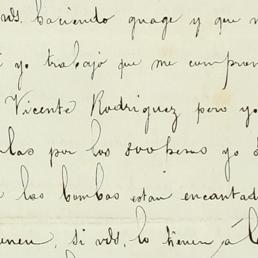 vds. haciendo guage y que n
i yo trabajo que me compren
Vicente Rodriguez pero yo
por los yo
las bombas estan encantad
si vds. lo tienen á b